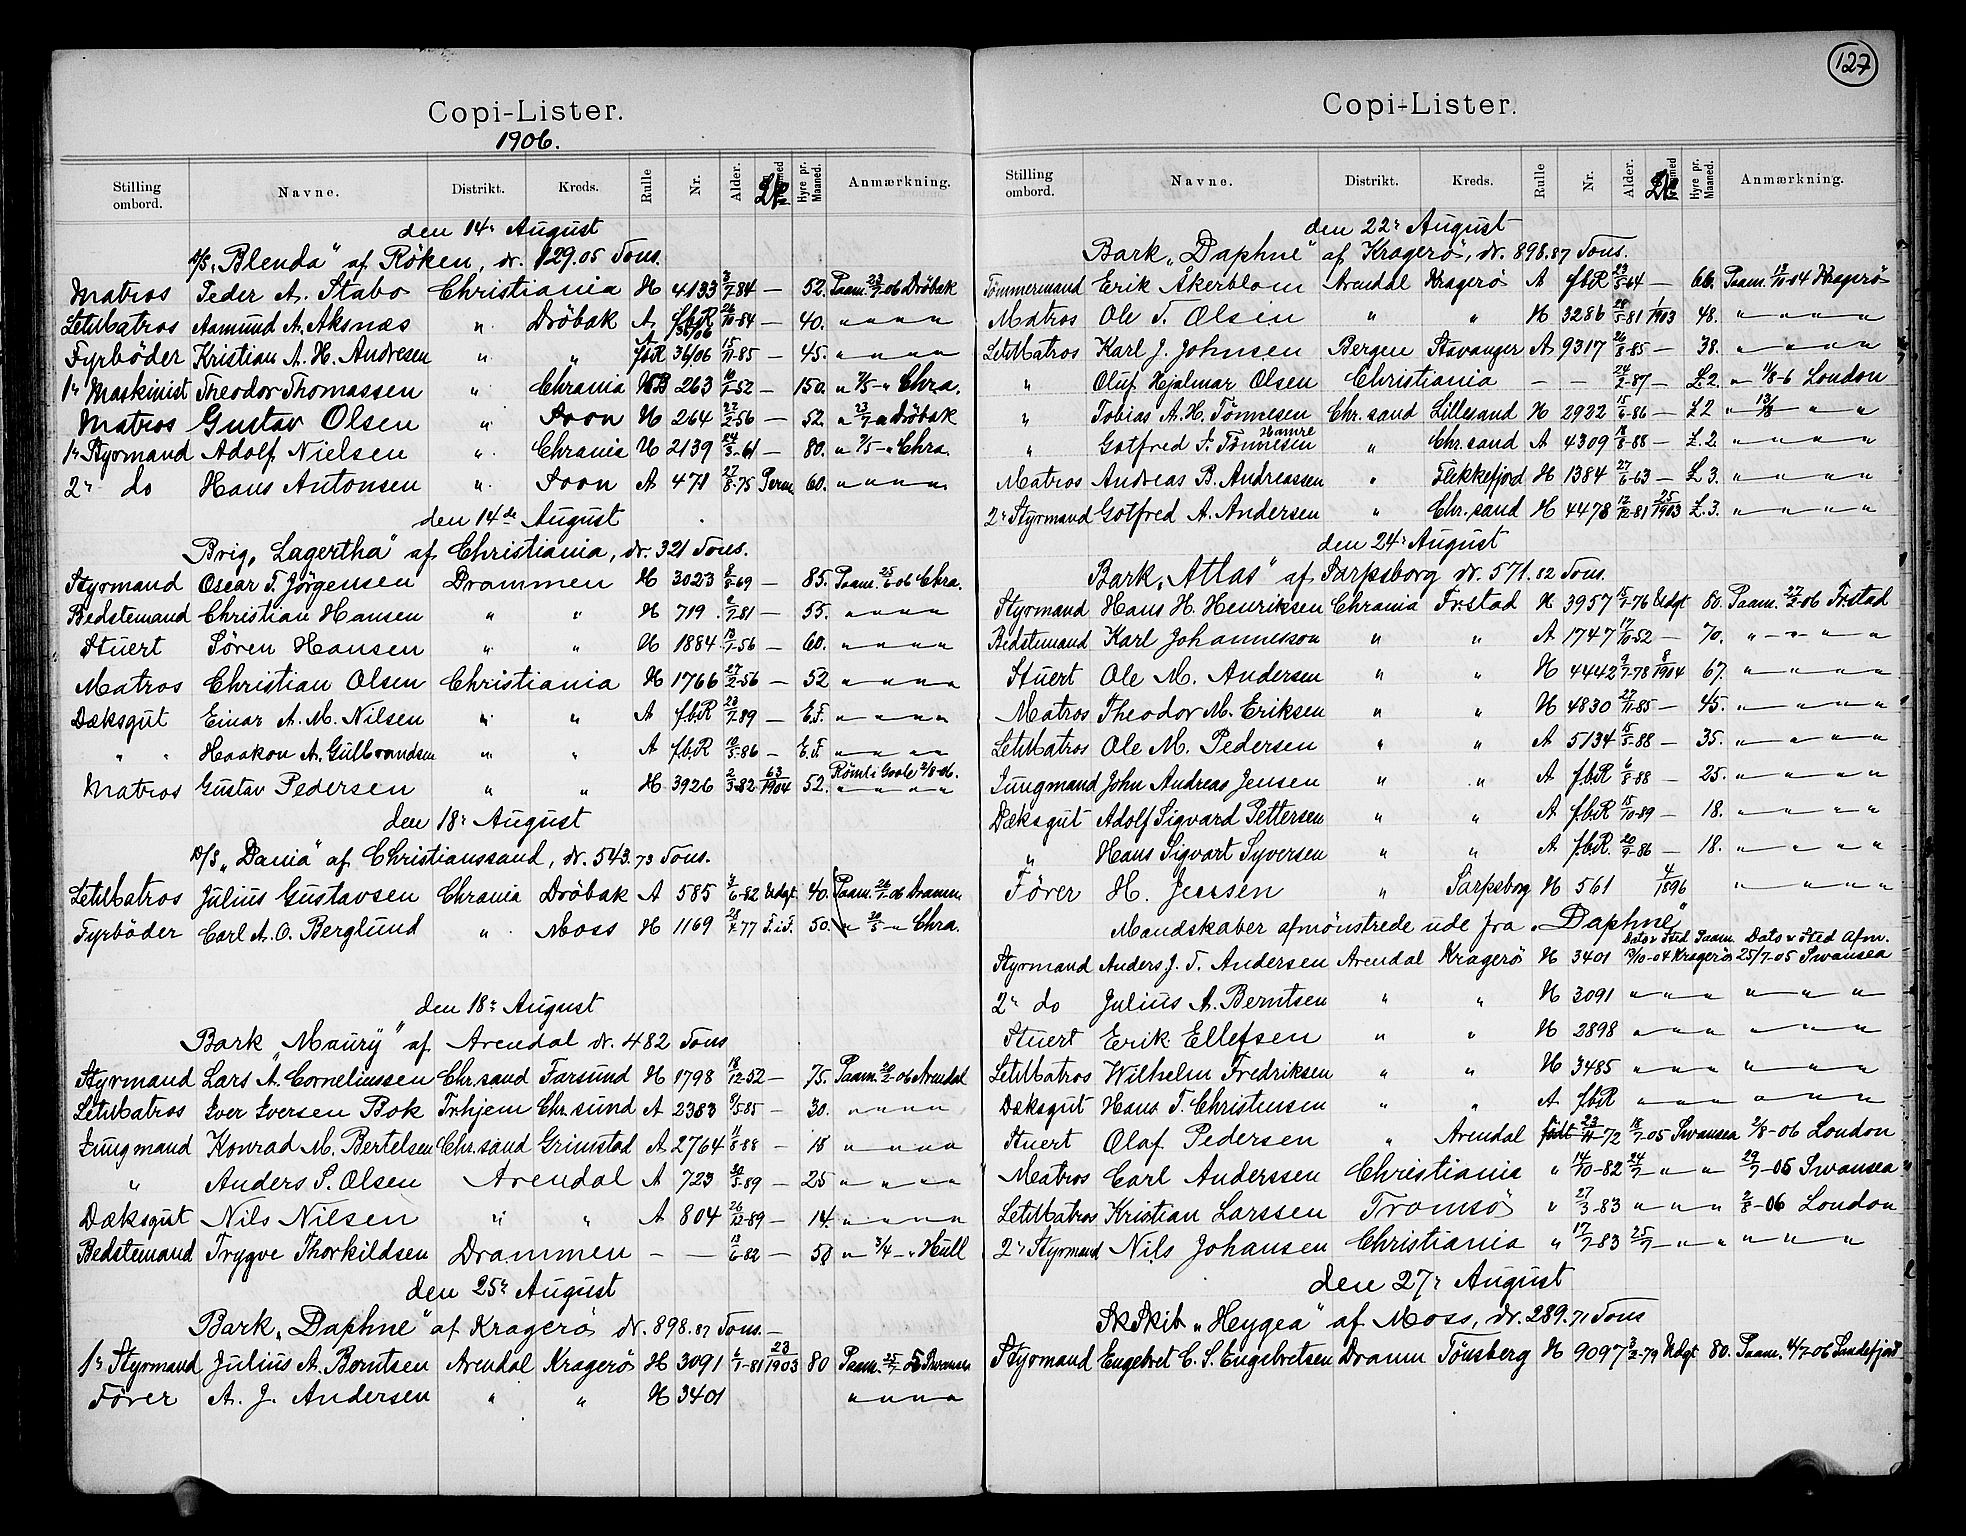 Copi-Lister.
1906.
Stilling ombord. Navne. Distrikt. Kreds. Rulle Nr. Alder. Hyre pr. Maaned. Anmærkning.
den 14r August
"Blenda" af Röken, dr. 129.05 Tons.
Matros Peder A. Stabo Christiania H 4133 3/7-84 — 52. Paam. 23/7-06 Dröbak
LetMatros Aamund A. Aksnæs " Dröbak A fbR 26/10-84 — 40. " " " "
Fyrböder Kristian A. H. Andresen " " fbR 36/06 15/11-85 — 45. " " " "
1r Maskinist Theodor Thomassen " Chrania 263 10/1-52 — 150. " 7/5-" Chra.
Matros Gustav Olsen " Soon H 264 27/2-56 — 52. " 23/7 " Dröbak
1r Styrmand Adolf Nielsen " Chrania H 2139 24/3-61 — 80. " 7/5-" Chra.
2r do Hans Antonsen " Soon A 471 27/8-75 Perm 60. " " " "
den 14de August
Brig "Lagertha" af Christiania, dr. 321 Tons.
Styrmand Oscar T. Jörgensen Drammen H 3023 8/8-69 — 85. Paam. 25/6-06 Chra.
Bedstemand Christian Hansen " " H 719 2/7-81 — 55. " " " "
Stuert Sören Hansen " " H 1884 10/1-56 — 60. " " " "
Matros Christian Olsen Christiania H 1766 27/2-56 — 52 " " " "
Dæksgut Einar A. M. Nilsen " " A fbR 20/7-89 — E.F. " " " "
" " Haakon A. Gulbrandsen " " A fbR 10/5-86 — E.F. " " " "
Matros Gustav Pedersen " " H 3926 2/3-82 63/1904 52. Römt i Goole 2/8-06.
" " " "
den 18r August
D/S "Dania" af Christianssand, dr. 543.73 Tons.
LetMatros Julius Gustavsen Chrania Dröbak A 585 3/6-82 Udgt 40. Paam. 26/7-06 Dramm.
Fyrböder Carl A. O. Berglund " Moss H 1169 28/7-77 F.i.F. 50. " 20/5 " Chra.
den 18r August
Bark "Maury" af Arendal dr. 482 Tons
Styrmand Lars A. Corneliussen Chr.sand Farsund H 1798 18/12-52 — 75. Paam. 20/2-06 Arendal
LetMatros Iver Iversen Bok Trhjem Chr.sund A 2383 9/5-85 — 30. " " " "
Jungmand Konrad M. Bertelsen Chr.sand Grimstad A 2764 11/8-88 — 18 " " " "
" Anders S. Olsen Arendal A 723 30/5-89 — 25 " " " "
Dæksgut Nils Nilsen " " A 804 26/12-89 — 14. " " " "
Bedstemand Trygve Thorkildsen Drammen — — 13/6-82 — 50 " 3/4 -" Hull
den 25r August
Bark "Daphne" af Kragerö dr. 898.87 Tons.—
1r Styrmand Julius A. Berntsen Arendal Kragerö H 3091 6/1-81 23/1903 80 Paam. 25/7-05 Swansea
Förer A. J. Andersen " " H 3401 " " " "
127
Copi-Lister.
Stilling ombord. Navne. Distrikt. Kreds. Rulle Nr. Alder. Hyre pr. Maaned. Anmærkning.
den 22r August
Bark "Daphne" af Kragerö, dr. 898.87 Tons.
Tömmermand Erik Åkerblom Arendal Kragerö A fbR 23/5-64 — 66. Paam. 13/10-04 Kragerö
Matros Ole T. Olsen " " H 3286 28/5-81 1/1903 48. " " " "
LetMatros Karl J. Johnsen Bergen Stavanger A 9317 26/3-85 — 38. " " " "
" Oluf Hjalmar Olsen Christiania — — 24/2-87 — £2. " 11/8-6 London
" Tobias A. H. Tönnesen Chr.sand Lillesand H 2922 15/6-86 — £2 " 13/8 " "
" Gotfred F. Tönnesen Hamre " Chr.sand A 4309 18/8-88 — £.2 " " " "
Matros Andreas B. Andreassen " Flekkefjord H 1384 27/6-63 — £3. " " " "
2r Styrmand Gotfred A. Andersen " Chr.sand H 4478 12/12-81 25/1903 £.3. " " " "
den 24r August
Bark "Atlas" af Sarpsborg dr. 571.82 Tons.
Styrmand Hans H. Henriksen Chrania Fr.stad H 3957 15/7-76 Udgt 80. Paam. 27/2-06 Fr.stad
Bedstemand Karl Johannesson " " A 1747 17/10-52 — 70. " " " "
Stuert Ole M. Andersen " " H 4442 9/7-78 8/1904 67. " " " "
Matros Theodor M. Eriksen " " H 4830 27/11-85 — 45. " " " "
LetMatros Ole M. Pedersen " " A 5134 15/5-88 — 35. " " " "
Jungmand John Andreas Jensen " " A fbR 6/8-88 — 25. " " " "
Dæksgut Adolf Sigvard Pettersen " " A fbR 15/10-89 — 18. " " " "
" Hans Sigvart Syversen " " A fbR. 20/9-86 — 18. " " " "
Förer H. Jenssen " Sarpsborg H 561 4/1896 " " " "
Mandskaber afmönstrede ude fra "Daphne"
Dato & Sted Paam. Dato & Sted Afm.
Styrmand Anders J. T. Andersen Arendal Kragerö H 3401 13/10-04 Kragerö 25/7-05 Swansea
2r do Julius A. Berntsen " " H 3091 " " " " " "
Stuert Erik Ellefsen " " H 2898 " " " " " "
LetMatros Wilhelm Fredriksen " " H 3485 " " " " " "
Dæksgut Hans T. Christensen " " A fbR " " " " " "
Stuert Olaf Pedersen " Arendal født 23/11-72 18/7-05 Swansea 2/8-06 London
Matros Carl Anderssen Christiania " 14/10-82 24/7 " " 29/7-05 Swansea
LetMatros Kristian Larssen Tromsö " 27/3-83 " " " 2/8-06 London
2r Styrmand Nils Johansen Christiania " 17/7-83 25/7 — " " " " "
den 27r August
Sk.Skib "Heygea" af Moss, dr. 289.71 Tons
Styrmand Engebret C. S. Engebretsen Dramm Tönsberg H 9097 3/2-79 Udgt 80. Paam. 4/7-06 Sandefjord